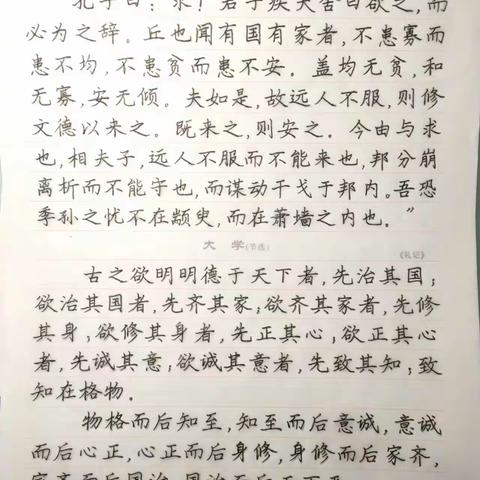 孔子曰:"求!君子疾夫舍曰欲之,而
必为之辞。丘也闻有国有家者,不患寡而
患不均,不患贫而患不安。盖均无贫,和
无寡,安无倾。夫如是,故远人不服,则修
文德以来之。既来之,则安之。今由与求
也,相夫子,远人不服而不能来也,邦分崩
离析而不能守也,而谋动干戈于邦内。吾恐
季孙之忧不在颛臾,而在萧墙之内也。"
大 学(节选)
《礼记》
古之欲明明德于天下者,先治其国;
欲治其国者,先齐其家;欲齐其家者,先修
其身;欲修其身者,先正其心;欲正其心
者,先诚其意;欲诚其意者,先致其知;致
知在格物。
物格而后知至,知至而后意诚,意诚
而后心正,心正而后身修,身修而后家齐,
家齐而后国治,国治而后天下平